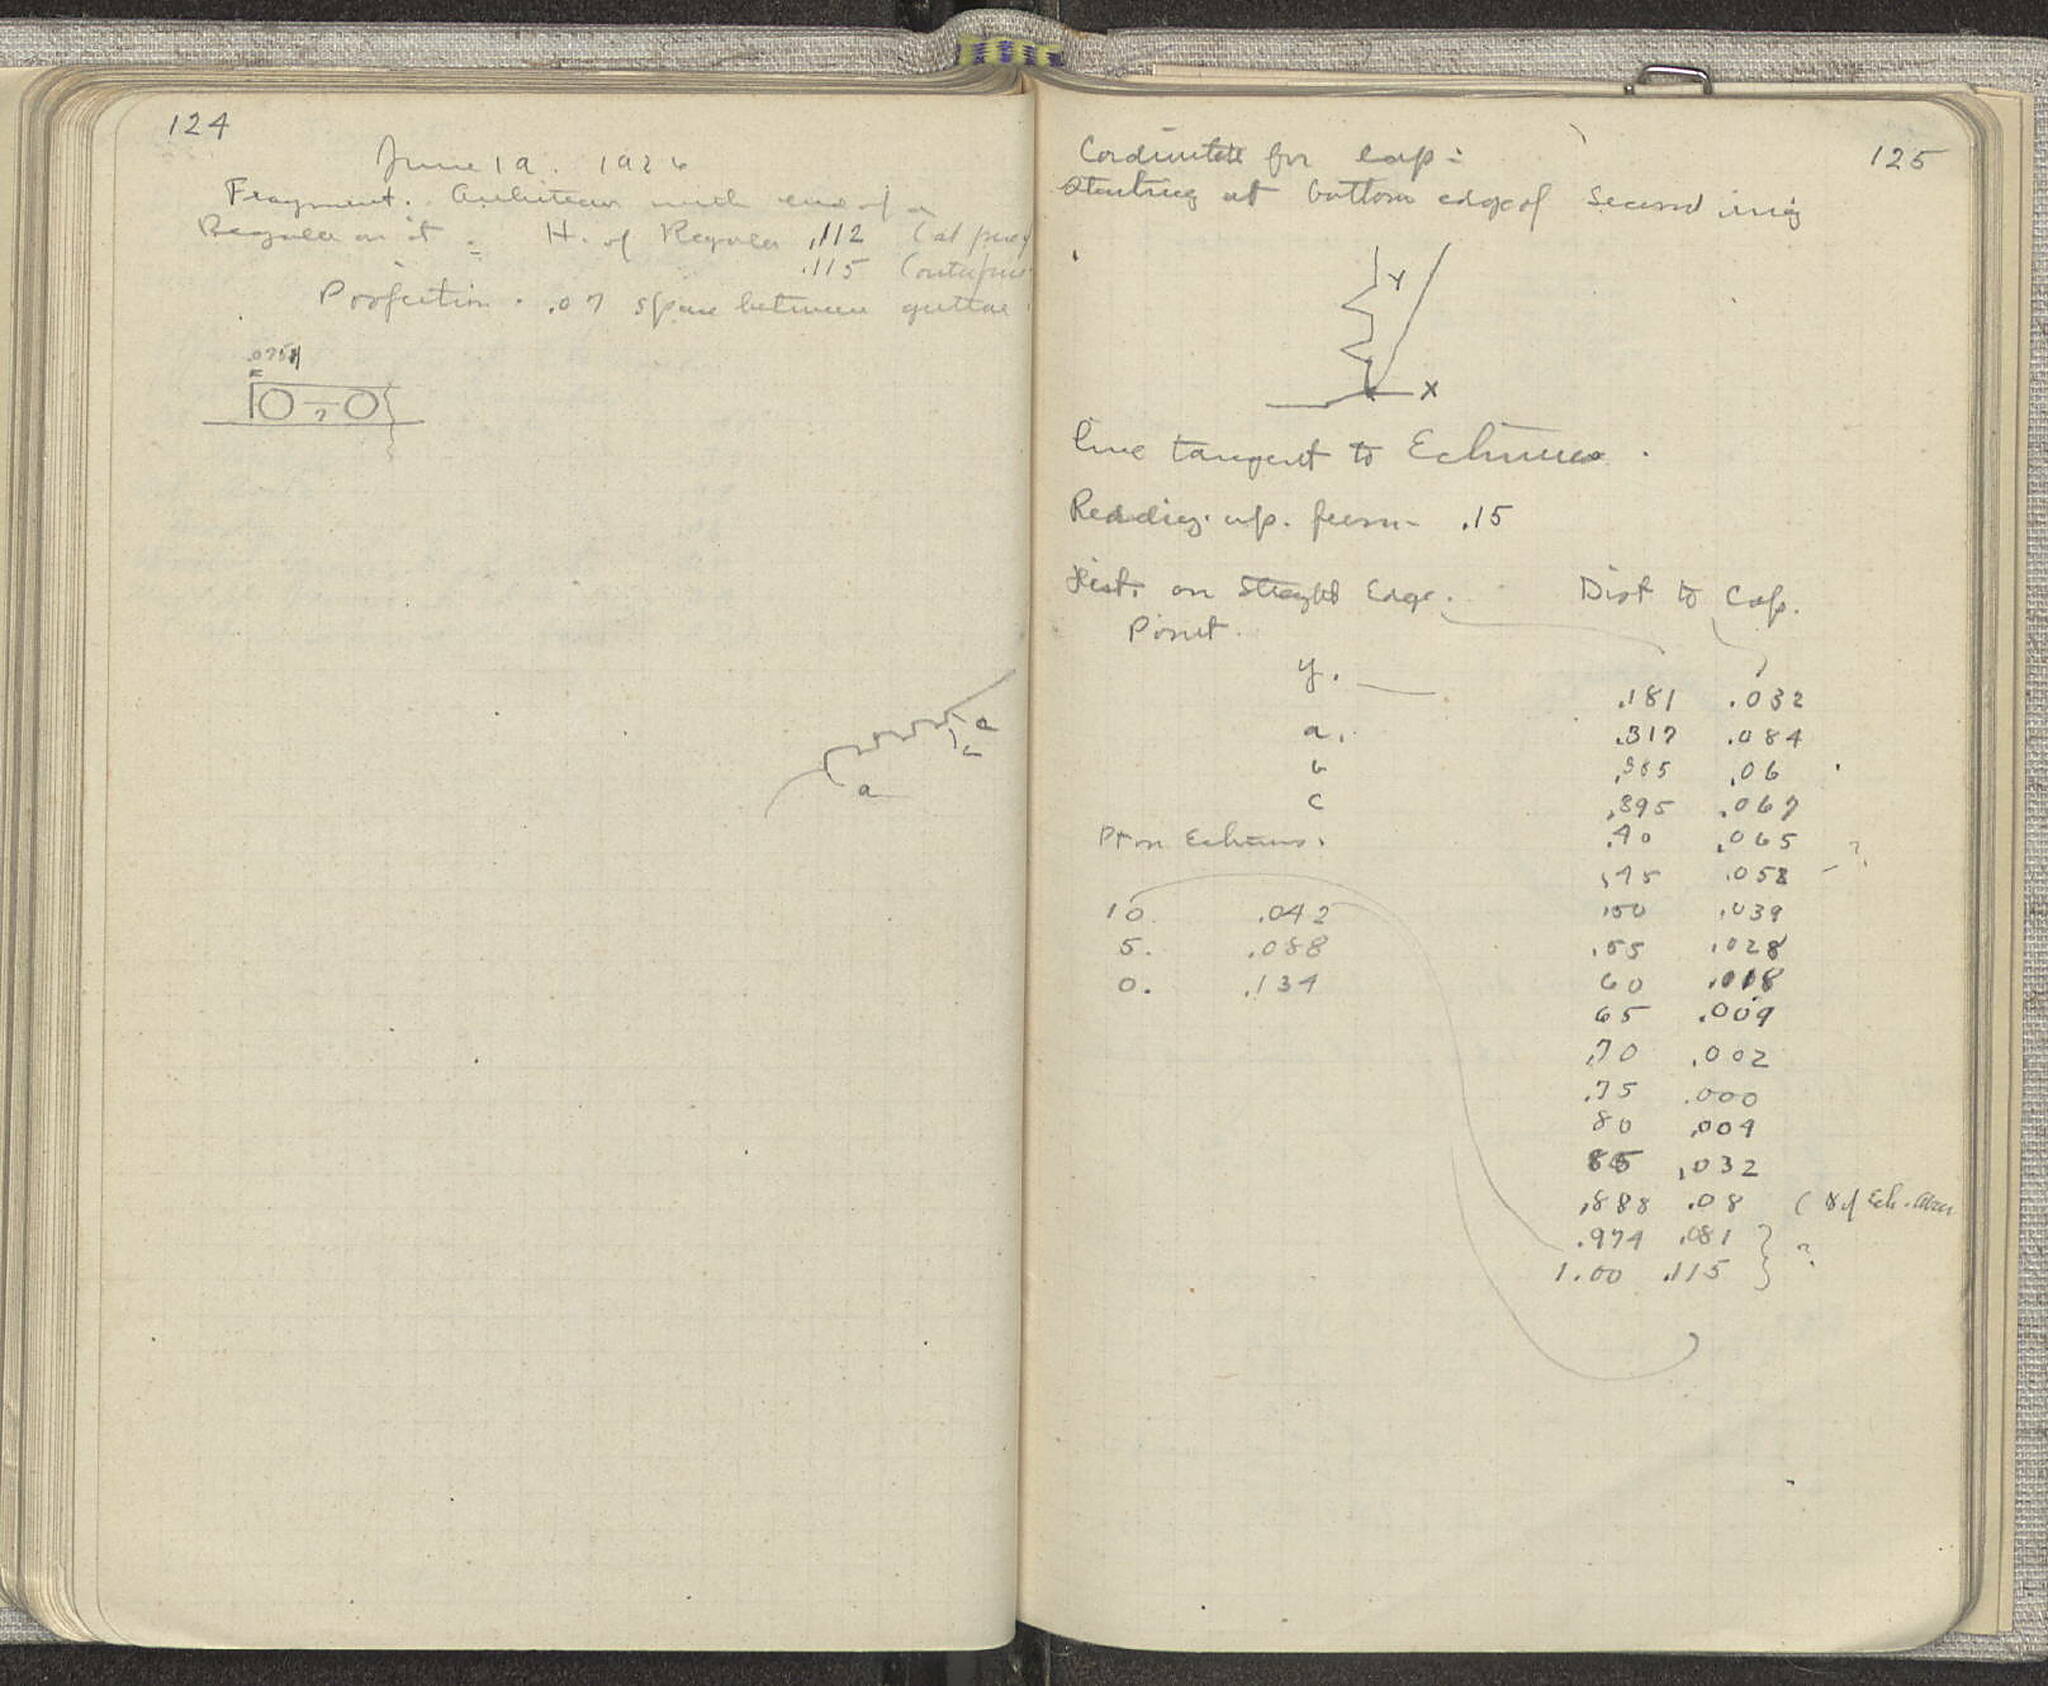 124
June 19. 1926
Fragment. Architrave with end of a
Regula on it : H. of Regula .112 (at
.115
Projection . .07 space between guttae
.075
?
a
c
a
125
Cordinates for Cap :
Starting at bottom edge of second ring
Y
X
line tangent to Echinus .
Reading. up. from .15
Dist. on Straight Edge. Dist to Cap.
Point.
y. .181 .032
a. .317 .084
b .365 .06
c .395 .067
Pt on Echinus. .40 .065
.45 .058 - ?.
10. .042 .50 .039
5. .088 .55 .028
0. .134 60 .018
65 .009
.70 .002
.75 .000
80 .004
85 .032
.888 .08 ( of Ech.
.974 .081
1.00 .115 } ?.